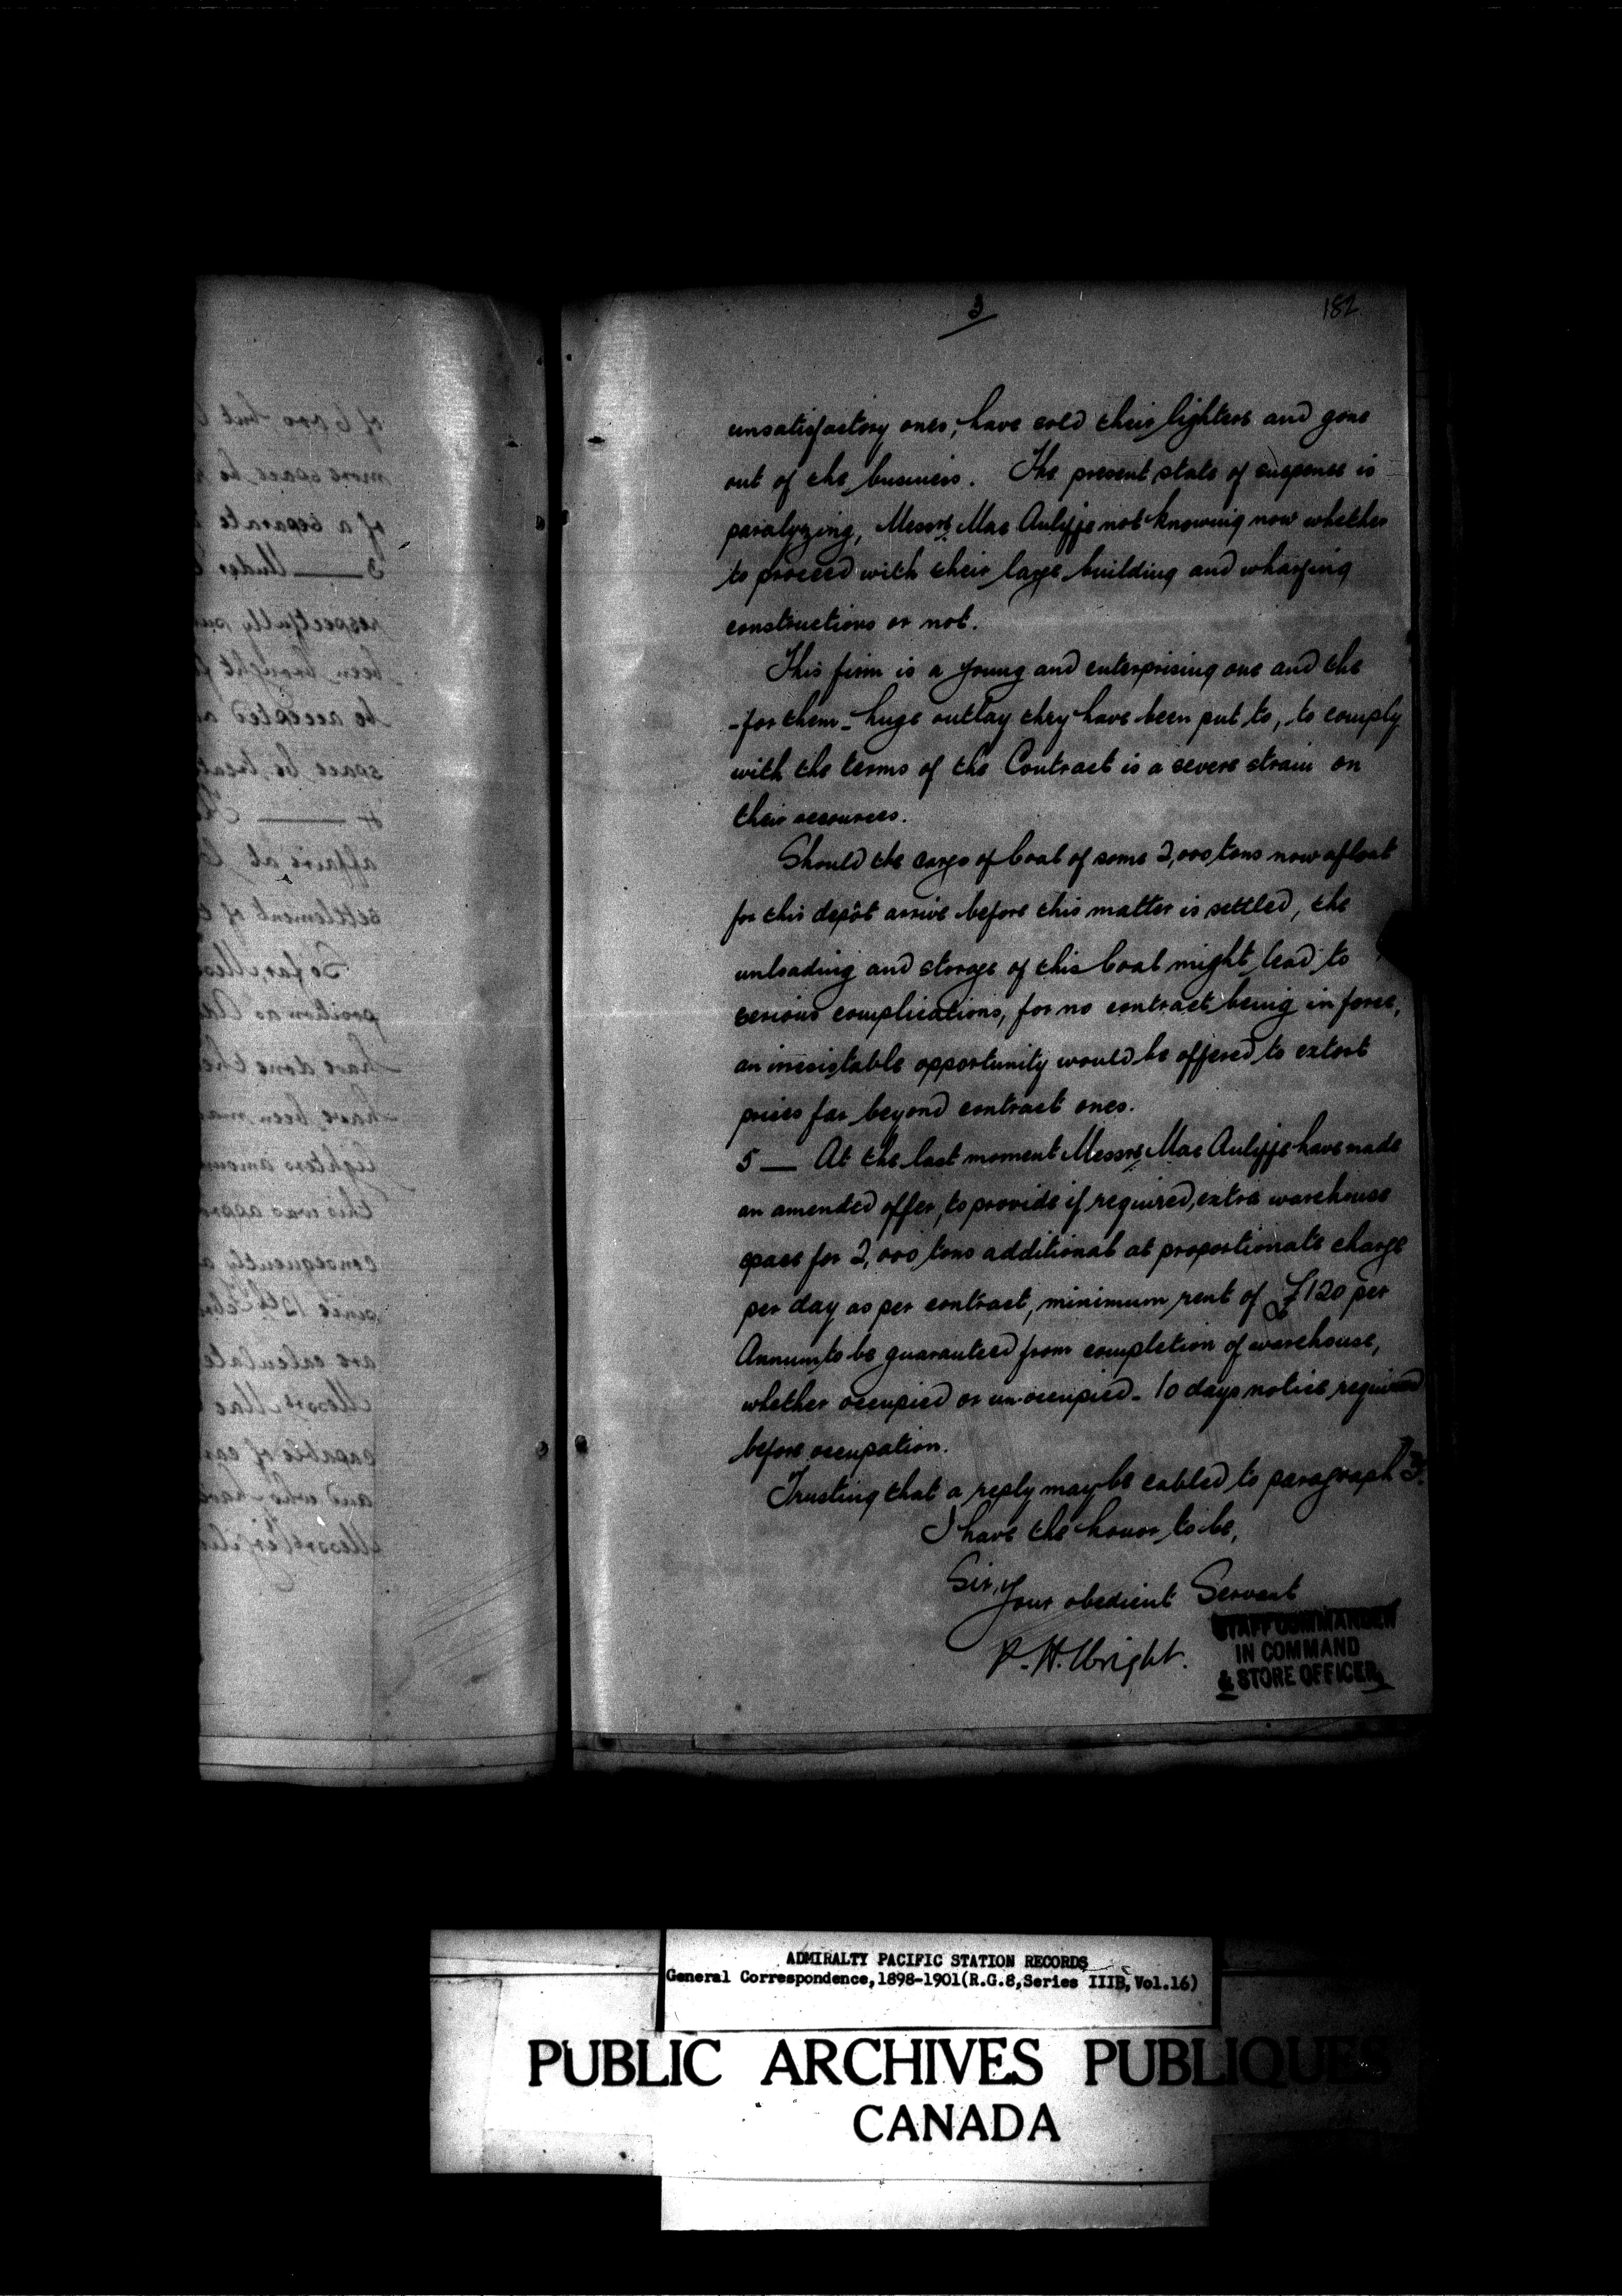 3
182
unsatisfactory ones, have sold their lighters and gone
out of the business. The present state of suspense is
paralyzing, Messrs. Mac Auliffe not knowing now whether
to proceed with their large building and wharfing
constructions or not.
This firm is a young and enterprising one and the
-for them- huge outlay they have been put to, to comply
with the terms of the Contract is a severe strain on
their resources.
Should the cargo of Coal of some 2,000 tons now afloat
for this depôt arrive before this matter is settled, the
unloading and storage of this Coal might lead to
serious complications, for no contract being in force,
an inresistable opportunity would be offered to extort
prices far beyond contract ones.
5 — At the last moment Messrs. Mac Auliffe have made
an amended offer, to provide if required, extra warehouse
space for 2,000 tons additional at proportionate charge
per day as per contract, minimum rent of £120 per
Annum to be guaranteed from completion of warehouse,
whether occupied or un-occupied - 10 days notice required
before occupation.
Trusting that a reply may be cabled to paragraph 3.
I have the honor to be,
Sir,
Your obedient Servant
P. H. Wright.
STAFF COMMANDER
IN COMMAND
& STORE OFFICER
ADMIRALTY PACIFIC STATION RECORDS
General Correspondence, 1898-1901 (R.G.8, Series IIIB, Vol.16)
PUBLIC ARCHIVES PUBLIQUES
CANADA